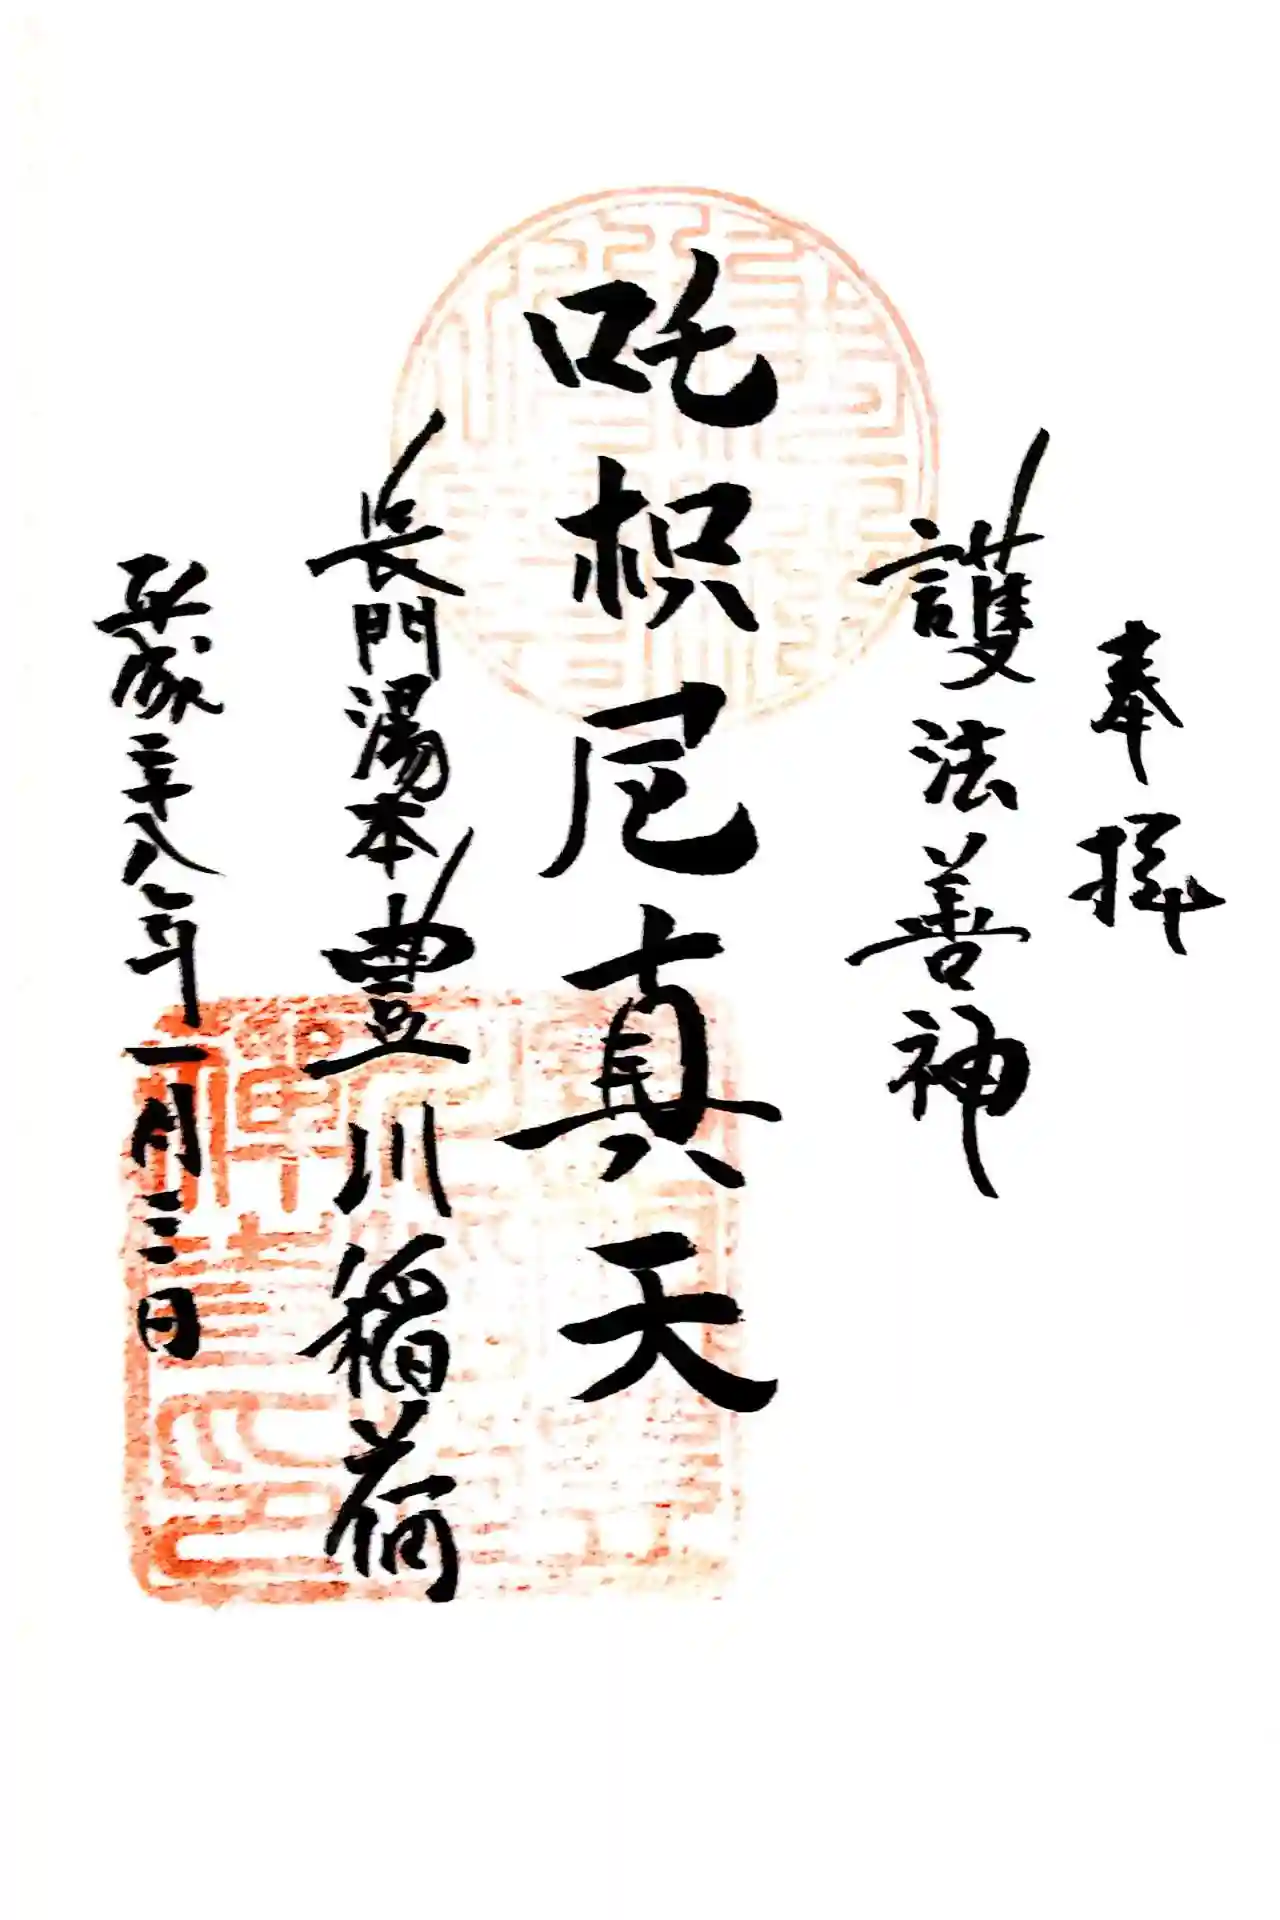 奉拝
護法善神
吒枳尼真天
長門湯本豊川稲荷
平成二十八年一月三日